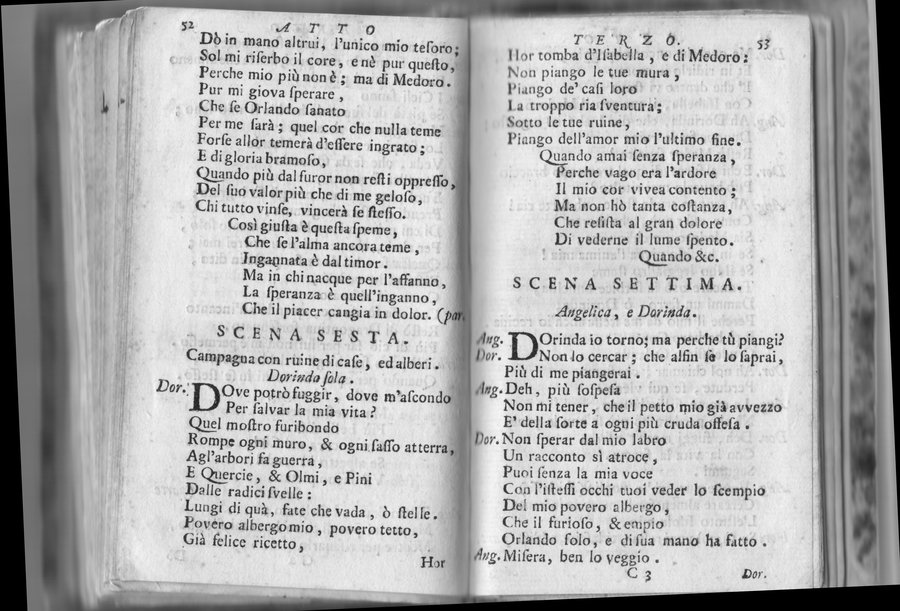 52 ATTO
Dò in mano altrui, l'unico mio teſoro;
Sol mi riſerbo il core, e nè pur queſto,
Perche mio più non è; ma di Medoro.
Pur mi giova ſperare,
Che ſe Orlando ſanato
Per me ſarà; quel cor che nulla teme
Forſe allor temerà d'eſſere ingrato;
E di gloria bramoſo,
Quando più dal furor non reſti oppreſſo,
Del ſuo valor più che di me geloſo,
Chi tutto vinſe, vincerà ſe ſteſſo.
Così giuſta è queſta ſpeme,
Che ſe l'alma ancora teme,
Ingannata è dal timor.
Ma in chi nacque per l'affanno,
La ſperanza è quell'inganno,
Che il piacer cangia in dolor. (par.
SCENA SESTA.
Campagna con ruine di caſe, ed alberi.
Dorinda ſola.
Dor. DOve potrò fuggir, dove m'aſcondo
Per ſalvar la mia vita?
Quel moſtro furibondo
Rompe ogni muro, & ogni ſaſſo atterra,
Agl'arbori fa guerra,
E Quercie, & Olmi, e Pini
Dalle radici ſvelle:
Lungi di quà, fate che vada, ò ſtelle.
Povero albergo mio, povero tetto,
Già felice ricetto,
Hor
TERZO. 53
Hor tomba d'Iſabella, e di Medoro:
Non piango le tue mura,
Piango de' caſi loro
La troppo ria ſventura;
Sotto le tue ruine,
Piango dell'amor mio l'ultimo fine.
Quando amai ſenza ſperanza,
Perche vago era l'ardore
Il mio cor vivea contento;
Ma non hò tanta coſtanza,
Che reſiſta al gran dolore
Di vederne il lume ſpento.
Quando &c.
SCENA SETTIMA.
Angelica, e Dorinda.
Ang. DOrinda io torno; ma perche tù piangi?
Dor. Non lo cercar; che alfin ſe lo ſaprai,
Più di me piangerai.
Ang. Deh, più ſoſpeſa
Non mi tener, che il petto mio già avvezzo
E' della ſorte a ogni più cruda offeſa.
Dor. Non ſperar dal mio labro
Un racconto sì atroce,
Puoi ſenza la mia voce
Con l'iſteſſi occhi tuoi veder lo ſcempio
Del mio povero albergo,
Che il furioſo, & empio
Orlando ſolo, e di ſua mano ha fatto.
Ang. Miſera, ben lo veggio.
C 3 Dor.